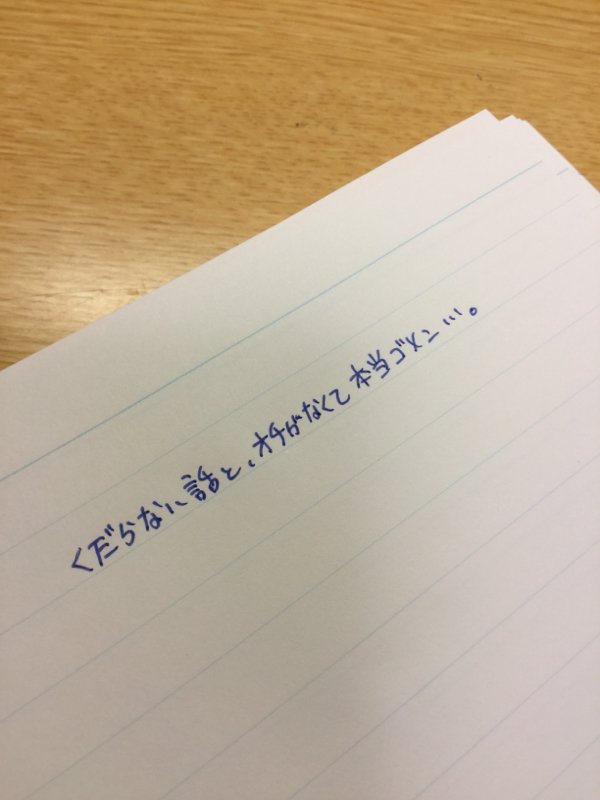 くだらない話と、オチがなくて本当ゴメン…。